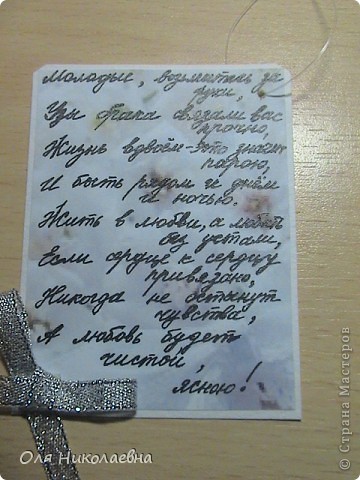 Молодые, возьмитесь за
руки,
Узы брака связали вас
прочно,
Жизнь вдвоём - это значит
парою,
И быть рядом и днём
и ночью.
Жить в любви, а любить
без устали,
Если сердце к сердцу
привязано,
Никогда не остынут
чувства,
А любовь будет
чистой,
ясною!
Оля Николаевна
© Страна Мастеров